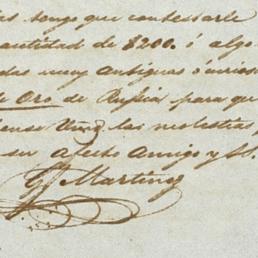 tengo que contestarle
cantidad de $200. ó algo
muy antiguas ó curiosas
de Oro de Rusia para que
Vmd. las molestias
su afecto Amigo y
G. Martinez